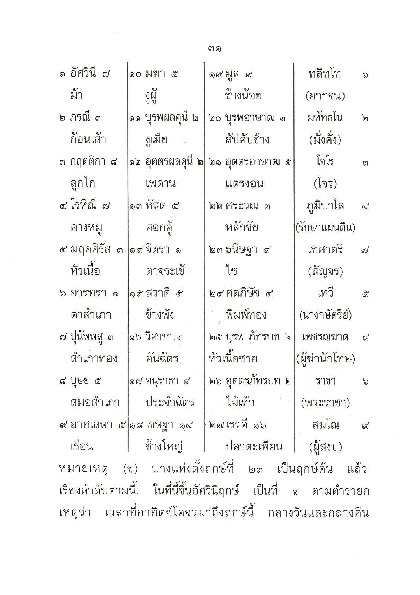 ๓๑
๑ อัศวินี ๗ ๑๐ มฆา ๕ ๑๙ มูล ๙ ทลิทโท ๑
ม้า งูผู้ ช้างน้อย (ยาจก)
๒ ภรณี ๓ ๑๑ บุรพผลคุนี ๒ ๒๐ บุรพอาษาฒ ๓ มหัทธโน ๒
ก้อนเส้า งูเมีย สัปคับช้าง (มั่งคั่ง)
๓ กฤตติกา ๘ ๑๒ อุตตรผลคุนี ๒ ๒๑ อุตตรอาษาฒ ๕ โจโร ๓
ลูกไก่ เพดาน แตรงอน (โจร)
๔ โรหิณี ๗ ๑๓ หัสต ๕ ๒๒ ศระวณ ๓ ภูมิปาโล ๔
คางหมู ศอกคู้ หลักชัย (รักษาแผ่นดิน)
๕ มฤคศิรัส ๓ ๑๔ จิตรา ๑ ๒๓ ธนิษฐา ๔ เทศาตรี ๗
หัวเนื้อ ตาจระเข้ ไซ (สัญจร)
๖ อารทรา ๑ ๑๕ สวาติ ๕ ๒๔ ศตภิษัช ๔ เทวี ๕
ตาสำเภา ช้างพัง พิมพ์ทอง (นางกษัตริย์)
๗ ปุนัพพสู ๓ ๑๖ วิสาขา ๒๕ บุรพภัทรบท ๒ เพชฌฆาต ๘
สำเภาทอง คันฉัตร หัวเนื้อทราย (ผู้ฆ่านักโทษ)
๘ ปุษย ๕ ๑๗ อนุราธา ๒๖ อุตตรภัทรบท ๒ ราชา ๖
สมอสำเภา ประจำฉัตร ไม้เท้า (พระราชา)
๙ อาศเลษา ๕ ๑๘ เชษฐา ๑๔ ๒๗ เรวดี ๑๖ สมโณ ๙
เรือน ช้างใหญ่ ปลาตะเพียน (ผู้สงบ)
หมายเหตุ บางแห่งตั้งฤกษ์ที่ ๒๓ เป็นฤกษ์ต้น แล้ว
เรียงลำดับตามนี้. ในที่นี้ขึ้นอัศวินีฤกษ์ เป็นที่ ๑ ตามตำรายก
เหตุว่า เวลาที่อาทิตย์โคจรมาถึงฤกษ์นี้ กลางวันและกลางคืน